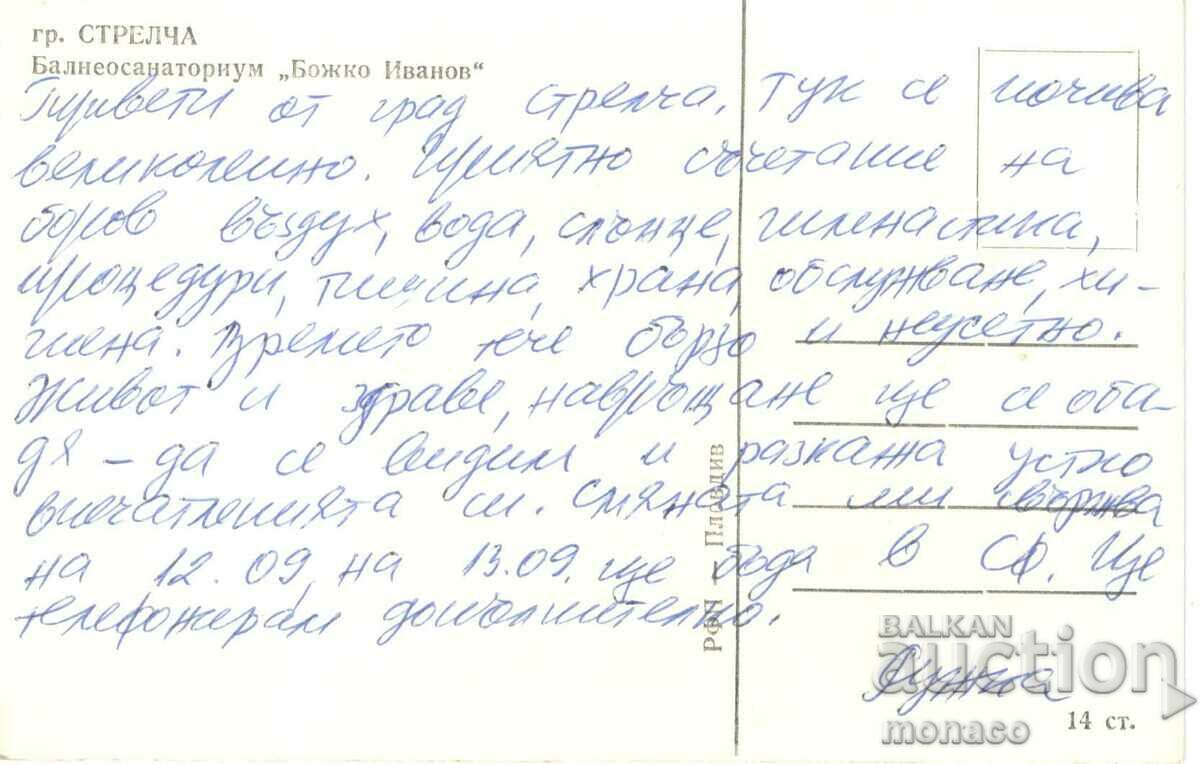 гр. СТРЕЛЧА
Балнеосанаториум „Божко Иванов“
Привети от град Стрелча. Тук се почива
великолепно. Приятно съчетание на
боров въздух, вода, слънце, гимнастика,
процедури, тишина, храна, обслужване, хи-
гиена. Времето тече бързо и неусетно.
Живот и здраве, навръщане ще се оба-
дя – да се видим и разкажа устно
впечатленията си. Смяната ми свършва
на 12.09, на 13.09. ще бъда в СФ. Ще
телефонирам допълнително.
РФН – Пловдив
14 ст.
BALKAN
auction
monaco